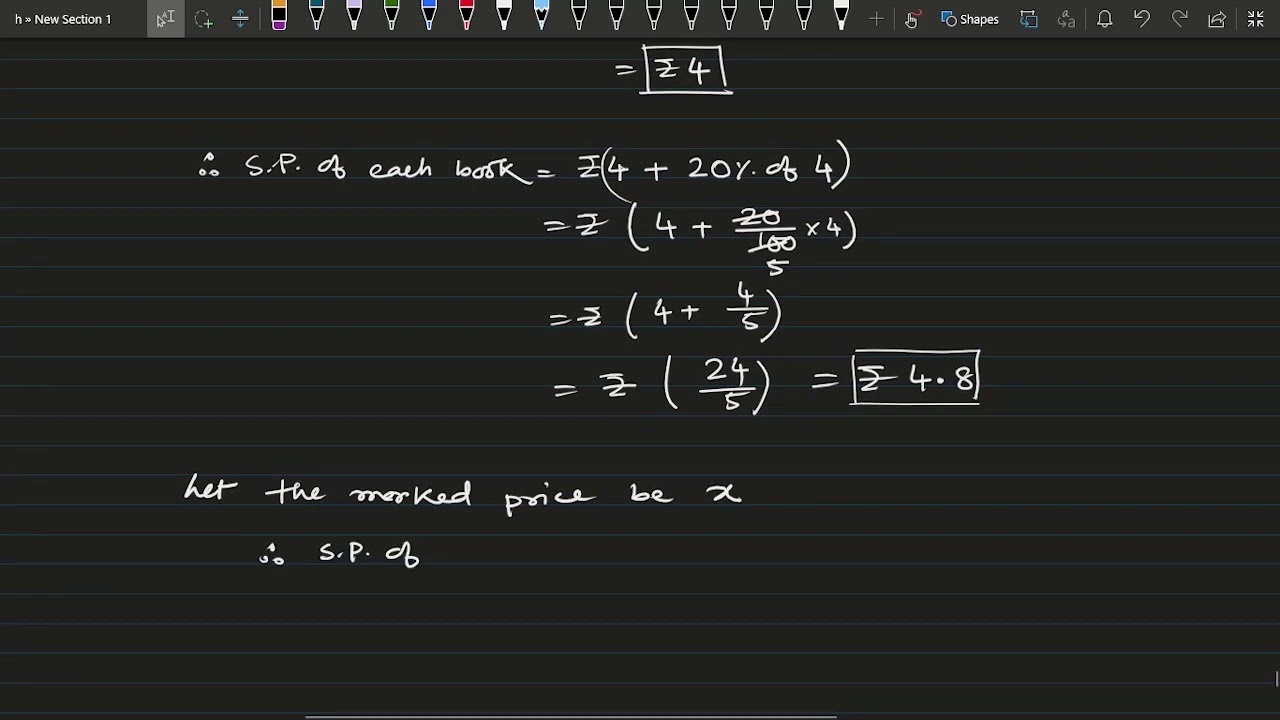 h » New Section 1 Shapes
= ₹ 4
∴ S.P. of each book = ₹(4 + 20% of 4)
= ₹ (4 + 20/100 × 4)
5
= ₹ (4 + 4/5)
= ₹ (24/5) = ₹ 4.8
Let the marked price be x
∴ S.P. of